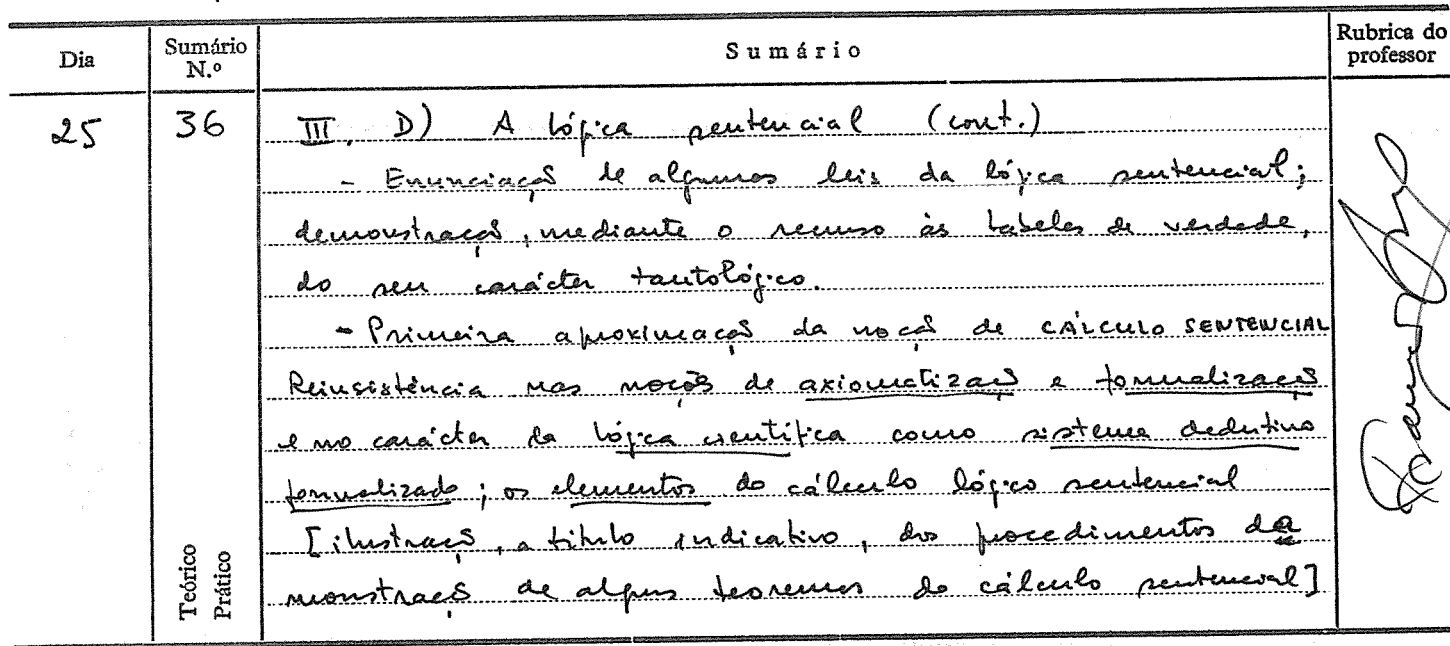 Dia Sumário N.º Sumário Rubrica do professor
25 36 III. D) A lógica sentencial (cont.)
- Enunciação de algumas leis da lógica sentencial;
demonstração, mediante o recurso às tabelas de verdade,
do seu carácter tautológico.
- Primeira aproximação da noção de CÁLCULO SENTENCIAL
Reinsistência nas noções de axiomatização e formalização
e no carácter da lógica científica como sistema dedutivo
formalizado; os elementos do cálculo lógico sentencial
[ilustração, a título indicativo, dos procedimentos da
monstração de alguns teoremas do cálculo sentencial]
Teórico
Prático